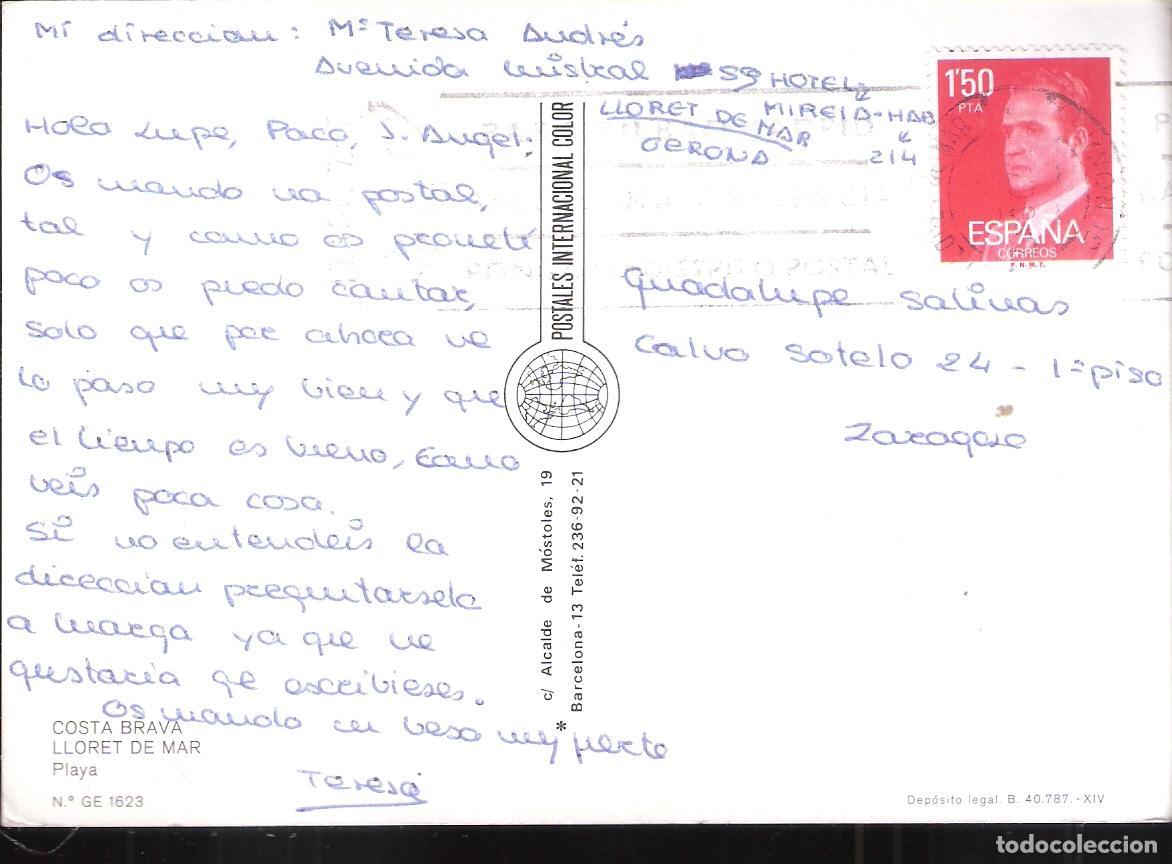 Mi direccian: Mª Teresa Andrés
Avenida mistral 59 HOTEL
MIREIA-HAB
214
LLORET DE MAR
GERONA
Hola Lupe, Paco, J. Angel;
Os mando na postal,
tal y camo os prometi
poco os puedo cantar,
solo que por ahora me
lo paso muy bien y que
el tiempo es bueno, Camo
veis poca cosa.
Si no entendeis la
direccian preguntarsela
a Marga ya que me
gustaria qe escribieses.
Os mando un beso muy fuerte
Teresa
1'50
PTA
ESPAÑA
CORREOS
F.N.M.T.
Guadalupe Salinas
Calvo Sotelo 24 - 1º piso
Zaragoza
POSTALES INTERNACIONAL COLOR
c/ Alcalde de Móstoles, 19
Barcelona-13 Teléf. 236-92-21
*
COSTA BRAVA
LLORET DE MAR
Playa
N.º GE 1623
Depósito legal. B. 40.787.-XIV
todocoleccion